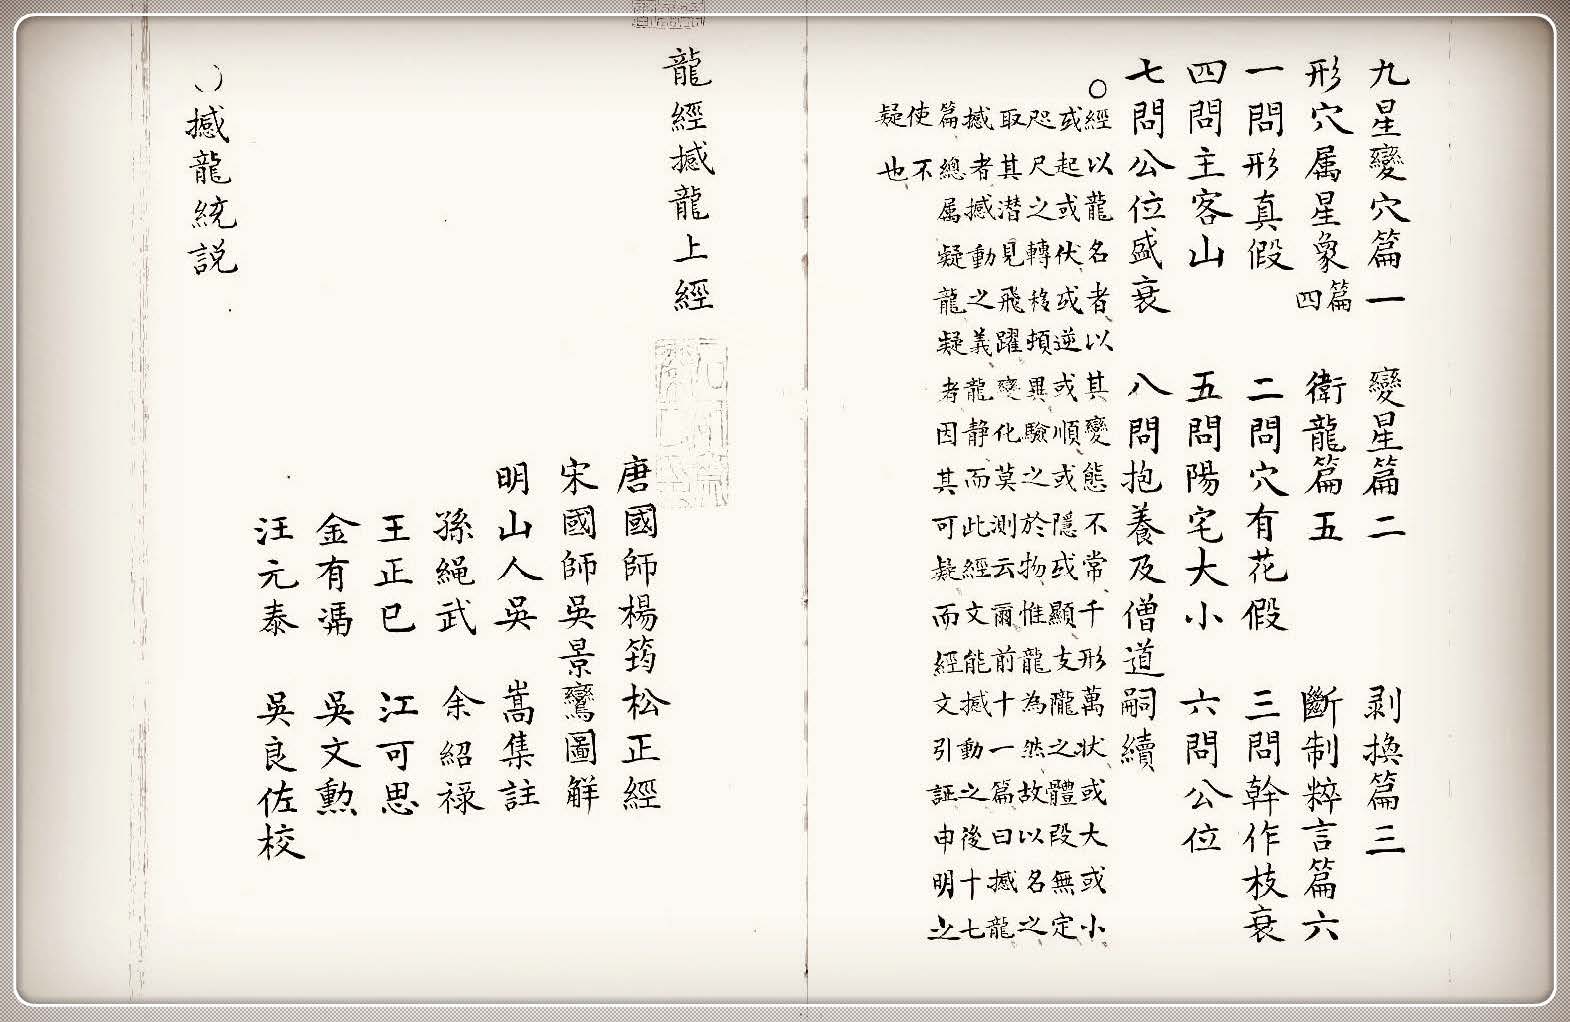 九星變穴篇一　變星篇二　剥換篇三
形穴属星象篇四　衛龍篇五　斷制粹言篇六
一問形真假　二問穴有花假　三問幹作枝衰
四問主客山　五問陽宅大小　六問公位
七問公位盛衰　八問抱養及僧道嗣續
○經以龍名者以其變態不常千形萬状或大或小
或起或伏或逆或順或隱或顯支隴之體段無定
咫尺之轉移頻異驗之於物惟龍為然故以名之
取其潜見飛躍變化莫測云爾前十一篇曰撼龍
撼者撼動之義龍静而此經文能撼動之後十七
篇總属疑龍疑者因其可疑而經文引証申明之
使不
疑也
龍經撼龍上經
唐國師楊筠松正經
宋國師吳景鸞圖解
明山人吳　嵩集註
孫繩武　余紹禄
王正巳　江可思
金有　吳文勲
汪元泰　吳良佐校
○撼龍統説